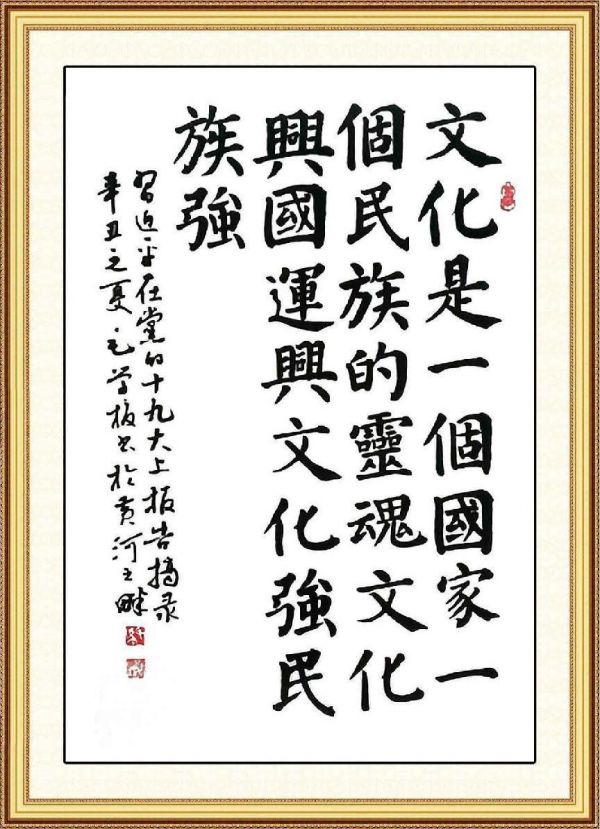 文化是一個國家一
個民族的靈魂文化
興國運興文化強民
族強
習近平在党的十九大上报告摘录
辛丑之夏毛学板书於黄河之畔